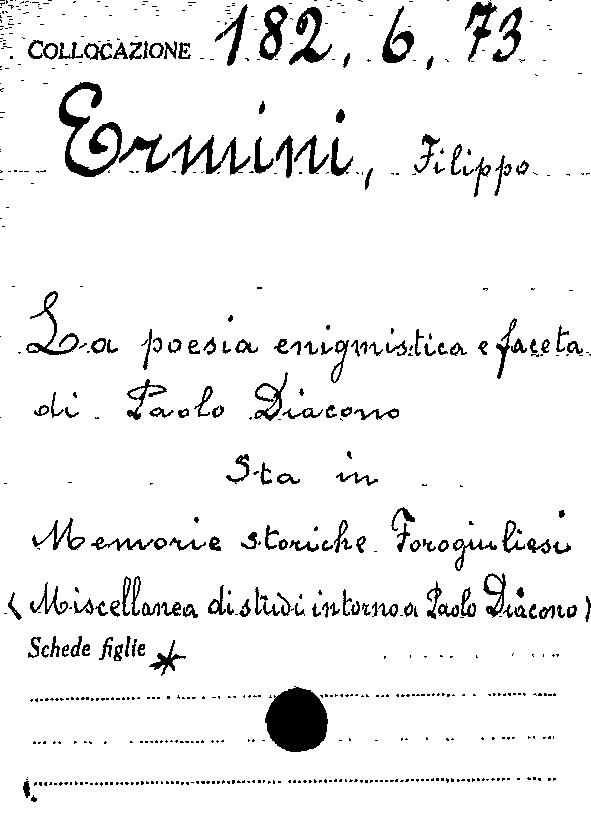 COLLOCAZIONE 182.6.73
Ermini, Filippo
La poesia enigmistica e faceta
di Paolo Diacono
Sta in
Memorie storiche Forogiuliesi
(Miscellanea di studi intorno a Paolo Diacono)
Schede figlie *